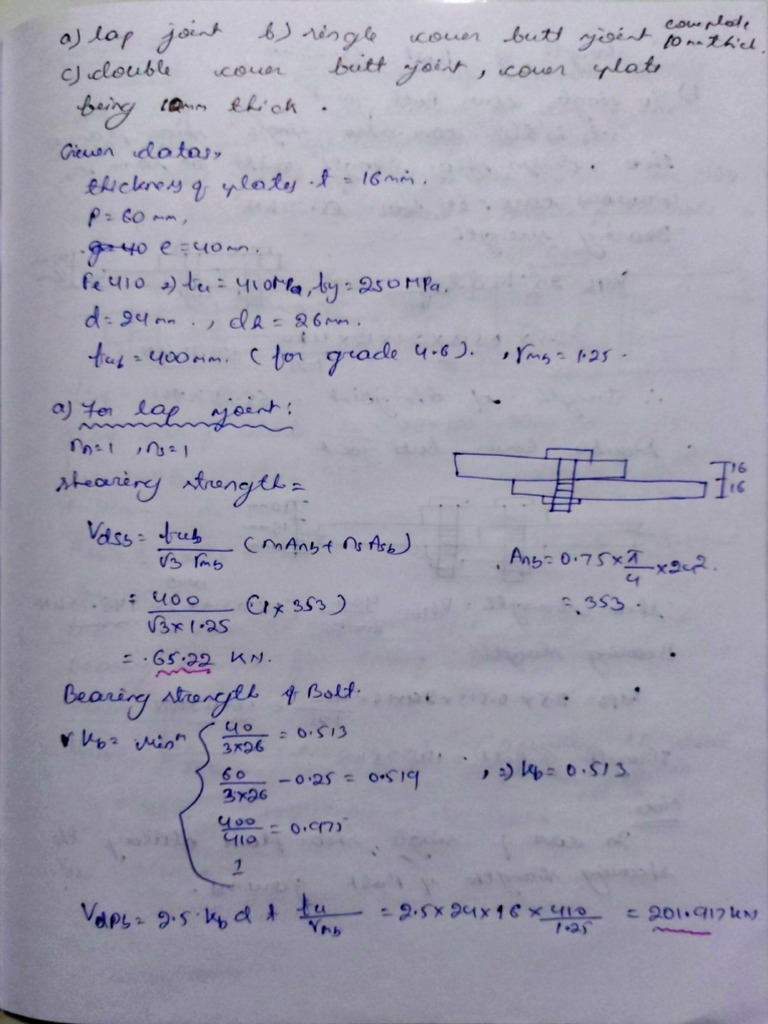 a) lap joint b) single cover butt joint cover plate
10 mm thick.
c) double cover butt joint, cover plate
being 10mm thick.
Given datas,
thickness of plates t = 16mm.
P = 60 mm,
e = 40mm.
Fe 410 ⇒ fu = 410MPa, fy = 250MPa.
d = 24mm., dh = 26mm.
fub = 400mm. (for grade 4.6)., γmb = 1.25.
a) For lap joint:
nn=1, ns=1
Shearing strength =
16
16
Vdsb = fub/√3 γmb (nnAnb + nsAsb)
Anb = 0.75 × π/4 × 24².
= 400/√3×1.25 (1 × 353)
= 353.
= 65.22 KN.
Bearing strength of Bolt.
Kb = Minm { 40/3×26 = 0.513
60/3×26 - 0.25 = 0.519 , ⇒ Kb = 0.513
400/410 = 0.975
1
Vdpb = 2.5 Kb d t fu/γmb = 2.5×24×16 × 410/1.25 = 201.917KN